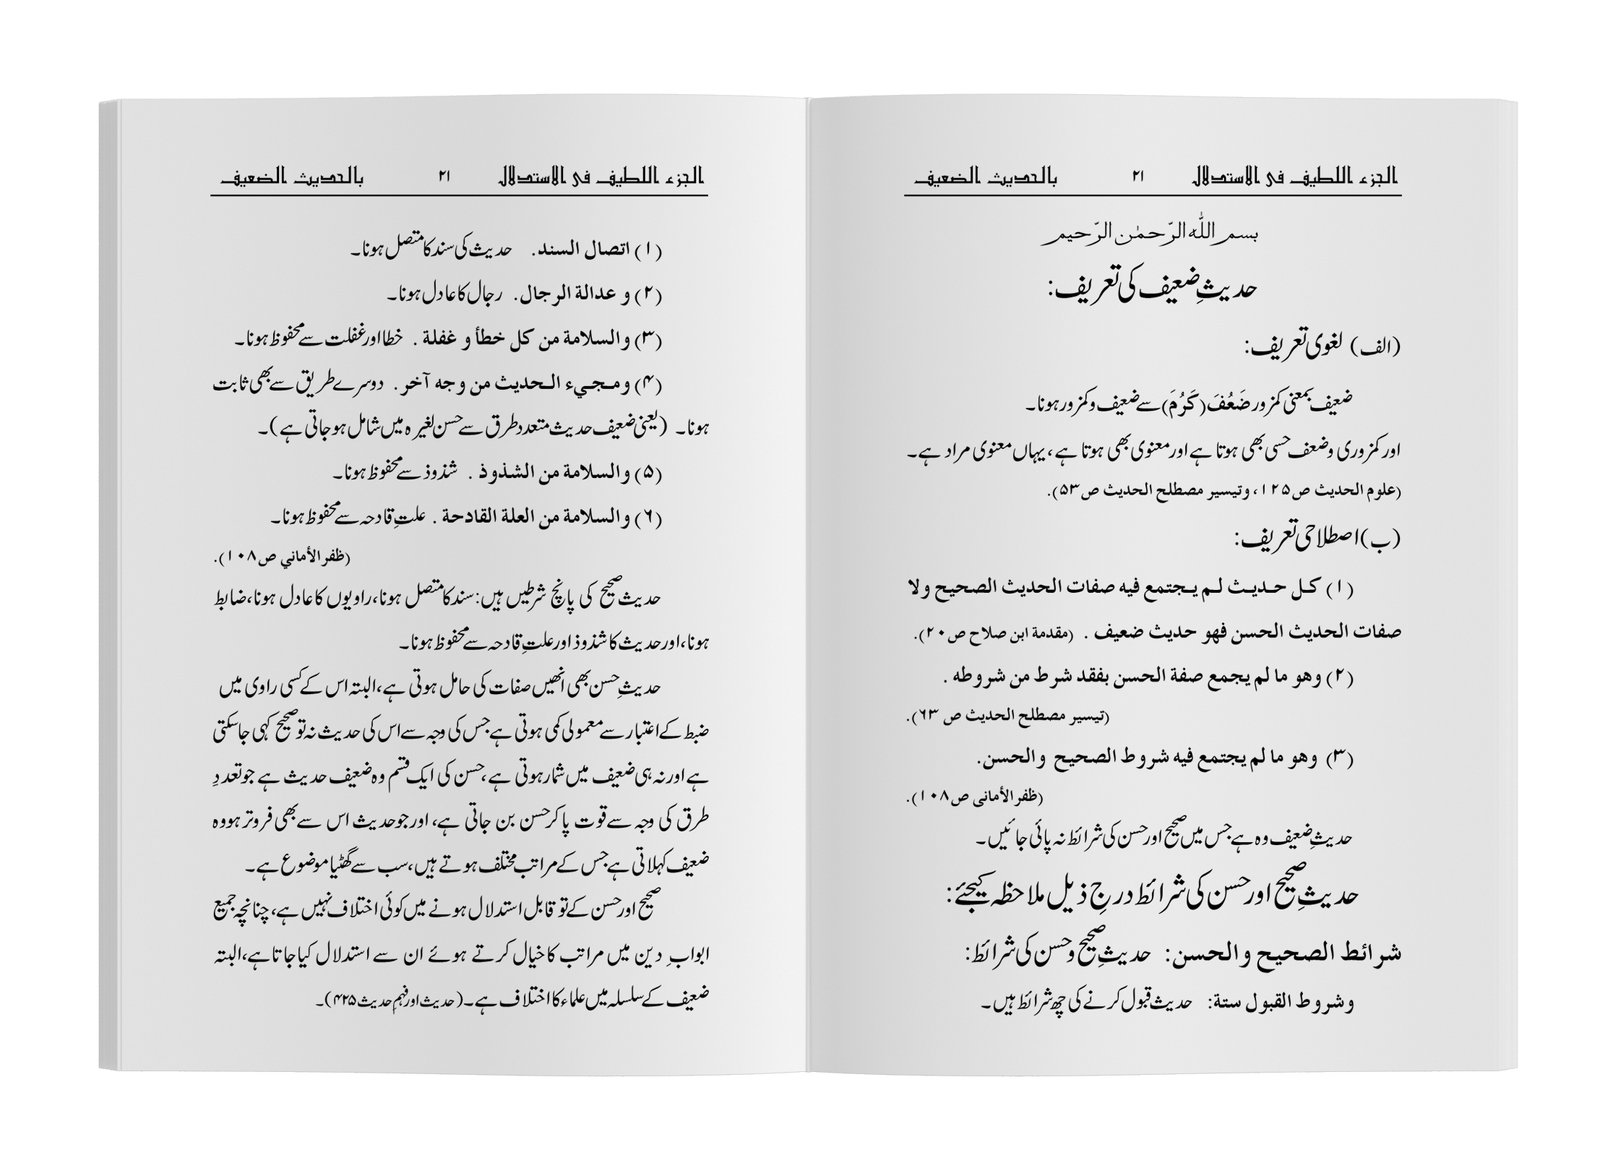 الجزء اللطيف فى الاستدلال ۲۱ بالحديث الضعيف
بسم الله الرّحمٰن الرّحيم
حدیثِ ضعیف کی تعریف:
(الف) لغوی تعریف:
ضعیف بمعنی کمزور ضَعُفَ (کَرُمَ) سے ضعیف و کمزور ہونا۔
اور کمزوری وضعف حسی بھی ہوتا ہے اور معنوی بھی ہوتا ہے، یہاں معنوی مراد ہے۔
(علوم الحديث ص۱۲۵، وتيسير مصطلح الحديث ص۵۳).
(ب) اصطلاحی تعریف:
(۱) كل حديث لم يجتمع فيه صفات الحديث الصحيح ولا
صفات الحديث الحسن فهو حديث ضعيف . (مقدمة ابن صلاح ص۲۰).
(۲) وهو ما لم يجمع صفة الحسن بفقد شرط من شروطه .
(تيسير مصطلح الحديث ص ۶۳).
(۳) وهو ما لم يجتمع فيه شروط الصحيح والحسن.
(ظفر الأمانى ص۱۰۸).
حدیثِ ضعیف وہ ہے جس میں صحیح اور حسن کی شرائط نہ پائی جائیں۔
حدیثِ صحیح اور حسن کی شرائط درجِ ذیل ملاحظہ کیجئے:
شرائط الصحيح والحسن: حدیثِ صحیح وحسن کی شرائط:
وشروط القبول ستة: حدیث قبول کرنے کی چھ شرائط ہیں۔
الجزء اللطيف فى الاستدلال ۲۱ بالحديث الضعيف
(۱) اتصال السند. حدیث کی سند کا متصل ہونا۔
(۲) و عدالة الرجال. رجال کا عادل ہونا۔
(۳) والسلامة من كل خطأ و غفلة . خطا اور غفلت سے محفوظ ہونا۔
(۴) ومجيء الحديث من وجه آخر. دوسرے طریق سے بھی ثابت
ہونا۔ (یعنی ضعیف حدیث متعدد طرق سے حسن لغیرہ میں شامل ہو جاتی ہے)۔
(۵) والسلامة من الشذوذ . شذوذ سے محفوظ ہونا۔
(۶) والسلامة من العلة القادحة . علتِ قادحہ سے محفوظ ہونا۔
(ظفر الأماني ص۱۰۸).
حدیث صحیح کی پانچ شرطیں ہیں: سند کا متصل ہونا، راویوں کا عادل ہونا، ضابط
ہونا، اور حدیث کا شذوذ اور علتِ قادحہ سے محفوظ ہونا۔
حدیثِ حسن بھی انھیں صفات کی حامل ہوتی ہے، البتہ اس کے کسی راوی میں
ضبط کے اعتبار سے معمولی کمی ہوتی ہے جس کی وجہ سے اس کی حدیث نہ تو صحیح کہی جاسکتی
ہے اور نہ ہی ضعیف میں شمار ہوتی ہے، حسن کی ایک قسم وہ ضعیف حدیث ہے جو تعددِ
طرق کی وجہ سے قوت پا کر حسن بن جاتی ہے، اور جو حدیث اس سے بھی فروتر ہو وہ
ضعیف کہلاتی ہے جس کے مراتب مختلف ہوتے ہیں، سب سے گھٹیا موضوع ہے۔
صحیح اور حسن کے تو قابل استدلال ہونے میں کوئی اختلاف نہیں ہے، چنانچہ جمیع
ابوابِ دین میں مراتب کا خیال کرتے ہوئے ان سے استدلال کیا جاتا ہے، البتہ
ضعیف کے سلسلہ میں علماء کا اختلاف ہے۔ (حدیث اور فہمِ حدیث ۴۲۵)۔